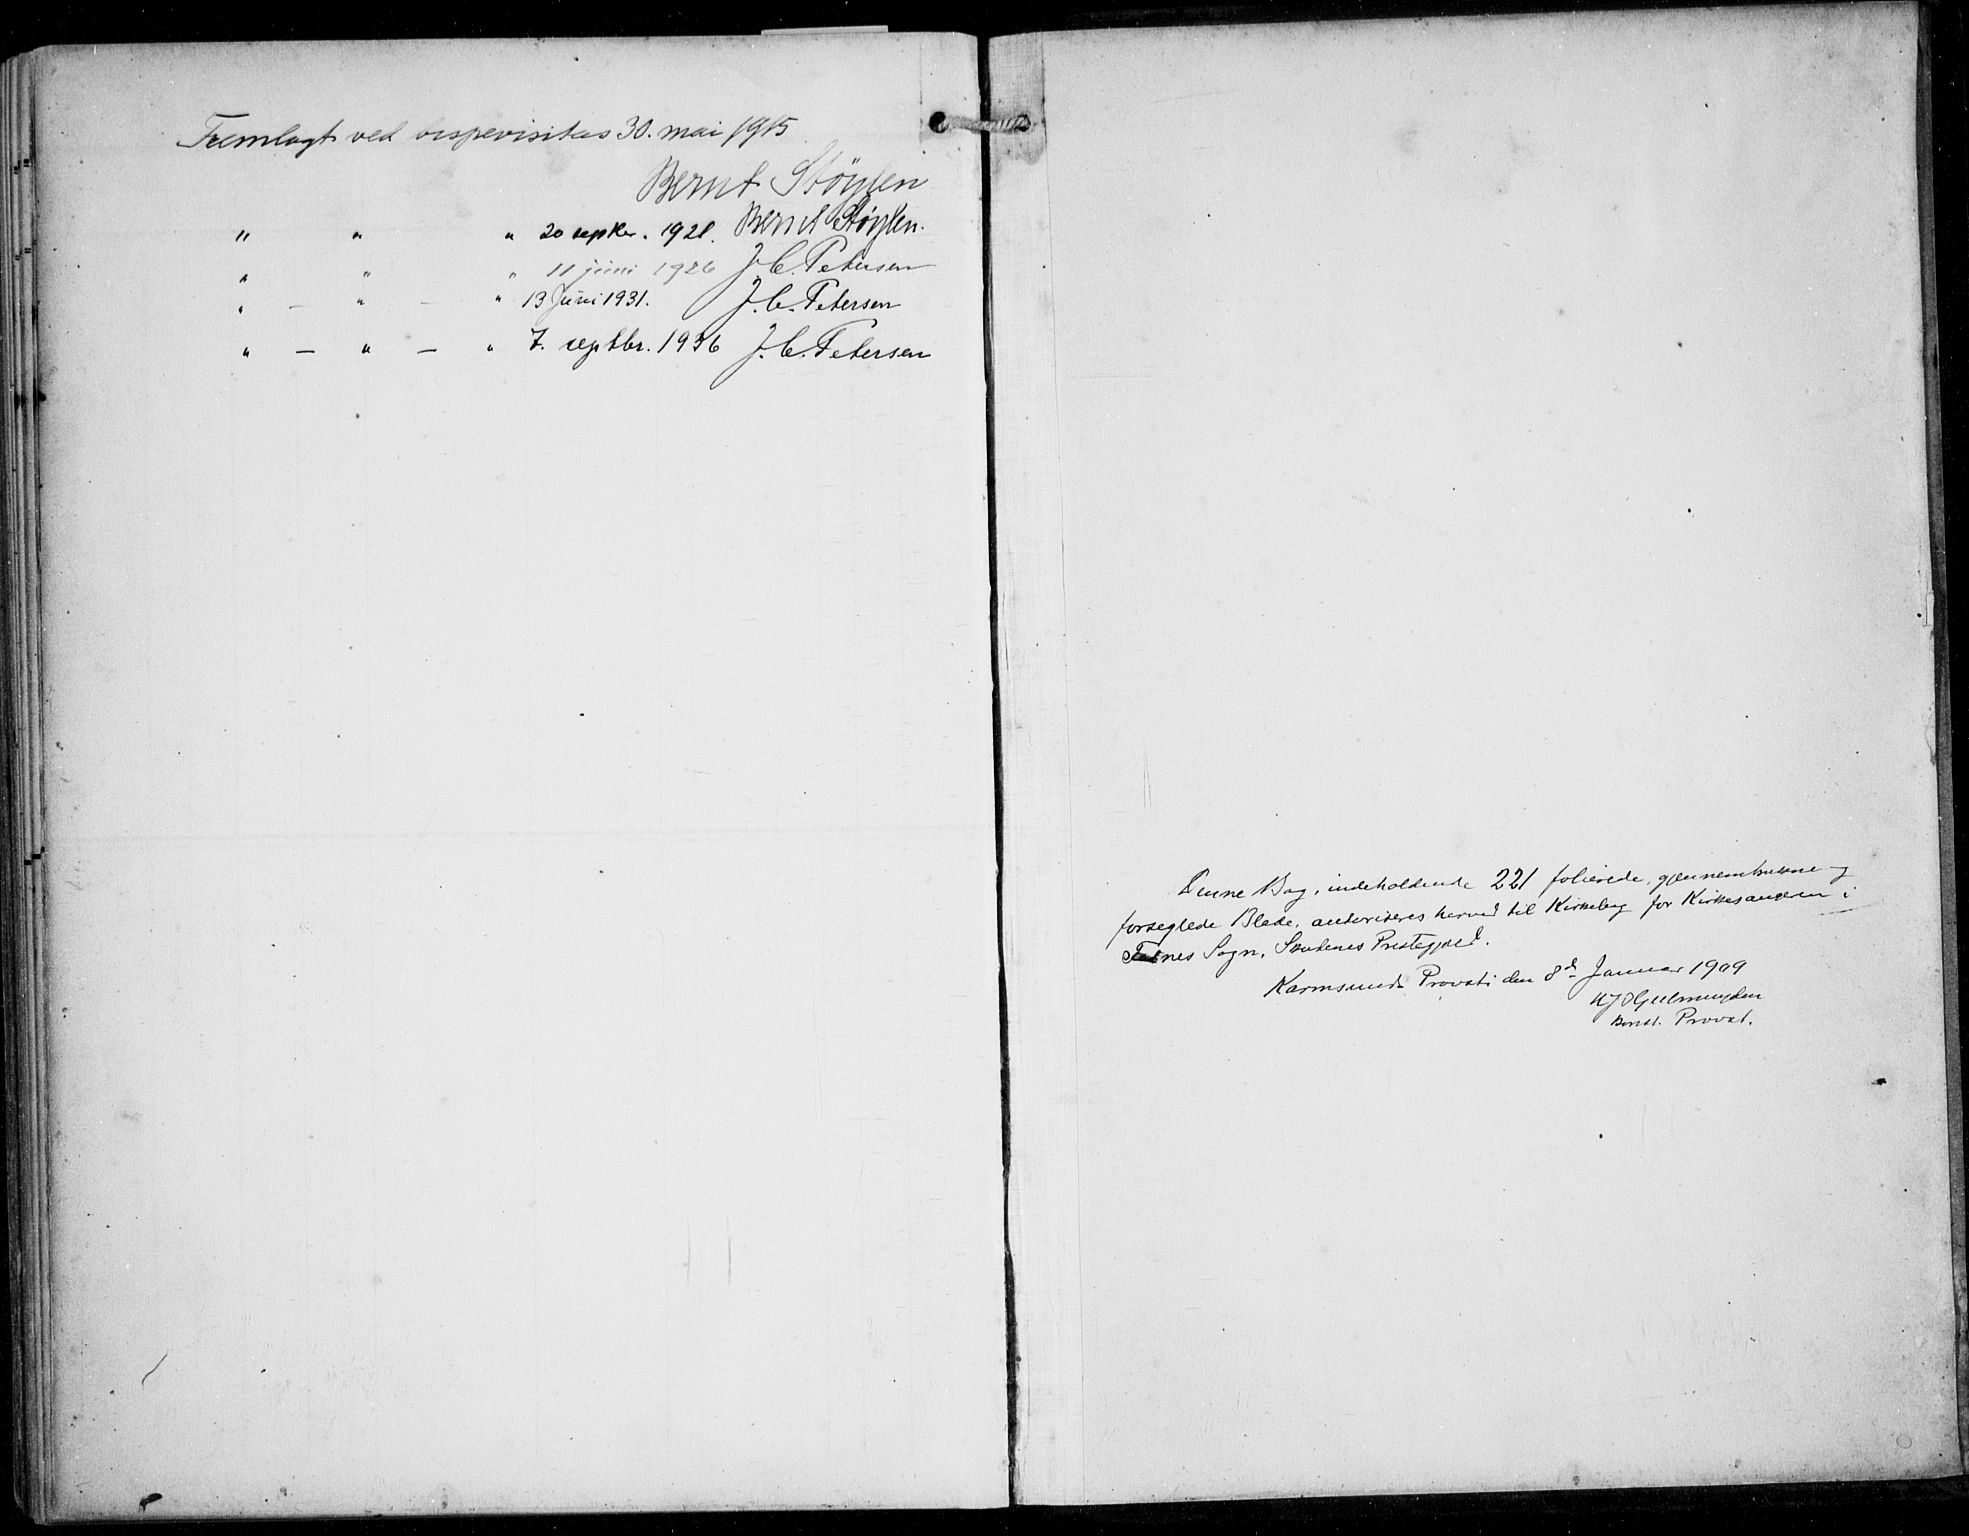 Fremlagt ved bispevisitas 30. mai 1915
Bernt Støylen
" " " 20 septbr. 1921. Bernt Støylen.
" " " 11 juni 1926 J. C. Petersen
" — " — " 13 Juni 1931. J. C. Petersen
" — " — " 7. septbr. 1936 J. C. Petersen
Denne Bog, indeholdende 221 folierede, gjennemtrukne og
forseglede Blade, autoriseres herved til Kirkebog for Kirkesangeren i
Falnes Sogn, Skudenes Prestegjeld.
Karmsunds Provsti den 8d Januar 1909
Hjelmuyden
konst. Provst.